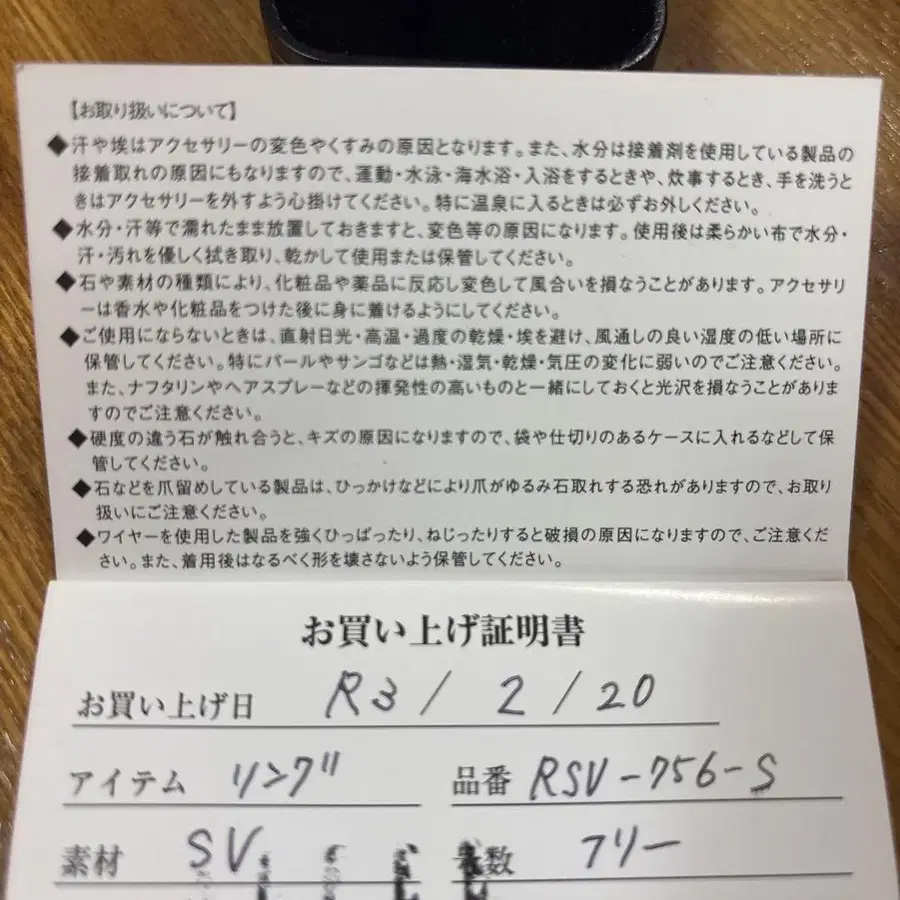 【お取り扱いについて】
◆汗や埃はアクセサリーの変色やくすみの原因となります。また、水分は接着剤を使用している製品の
接着取れの原因にもなりますので、運動・水泳・海水浴・入浴をするときや、炊事するとき、手を洗うと
きはアクセサリーを外すよう心掛けてください。特に温泉に入るときは必ずお外しください。
◆水分・汗等で濡れたまま放置しておきますと、変色等の原因になります。使用後は柔らかい布で水分・
汗・汚れを優しく拭き取り、乾かして使用または保管してください。
◆石や素材の種類により、化粧品や薬品に反応し変色して風合いを損なうことがあります。アクセサリ
ーは香水や化粧品をつけた後に身に着けるようにしてください。
◆ご使用にならないときは、直射日光・高温・過度の乾燥・埃を避け、風通しの良い湿度の低い場所に
保管してください。特にパールやサンゴなどは熱・湿気・乾燥・気圧の変化に弱いのでご注意ください。
また、ナフタリンやヘアスプレーなどの揮発性の高いものと一緒にしておくと光沢を損なうことがありま
すのでご注意ください。
◆硬度の違う石が触れ合うと、キズの原因になりますので、袋や仕切りのあるケースに入れるなどして保
管してください。
◆石などを爪留めしている製品は、ひっかけなどにより爪がゆるみ石取れする恐れがありますので、お取り
扱いにご注意ください。
◆ワイヤーを使用した製品を強くひっぱったり、ねじったりすると破損の原因になりますので、ご注意くだ
さい。また、着用後はなるべく形を壊さないよう保管してください。
お買い上げ証明書
お買い上げ日 R3/2/20
アイテム リング 品番 RSV-756-S
素材 SV 数 フリー